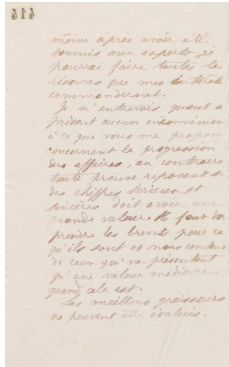 même après avoir été
soumis aux experts je
pourrai faire toutes les
réserves que mes intérêts
commanderont.
Je n'entrevois quant à
présent aucun inconvénient
à ce que vous me proposez
concernant la progression
des affaires, au contraire
toute preuve reposant sur
des chiffres sérieux et
sincères doit avoir une
grande valeur. Il faut
prendre les brevets pour ce
qu'ils sont et non
de ceux qui ne présentent
qu'une valeur médiocre
quand cela est.
Les maillons graisseurs
ne peuvent être évalués.